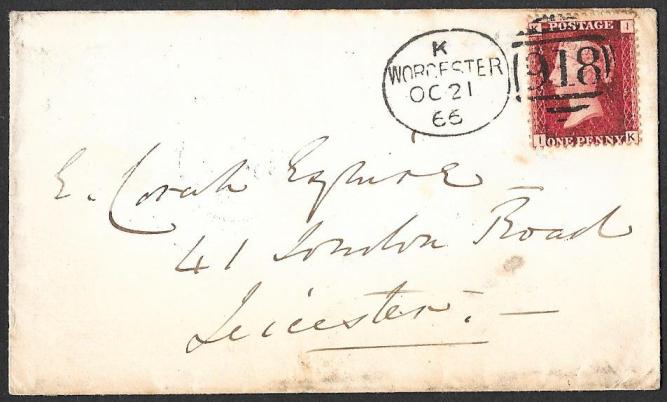 K
WORCESTER
OC 21
66
918
K I
POSTAGE
ONE PENNY
I K
E. Corah Esquire
41 London Road
Leicester. —